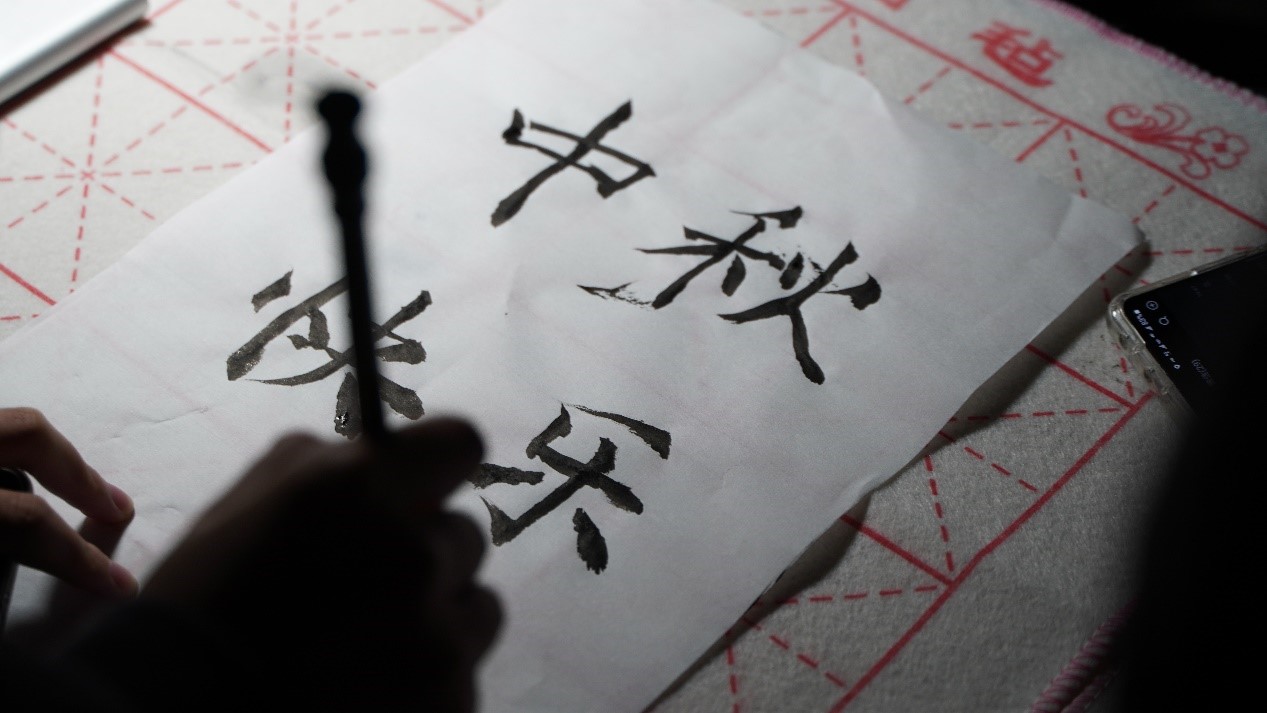 中秋
快乐
毡